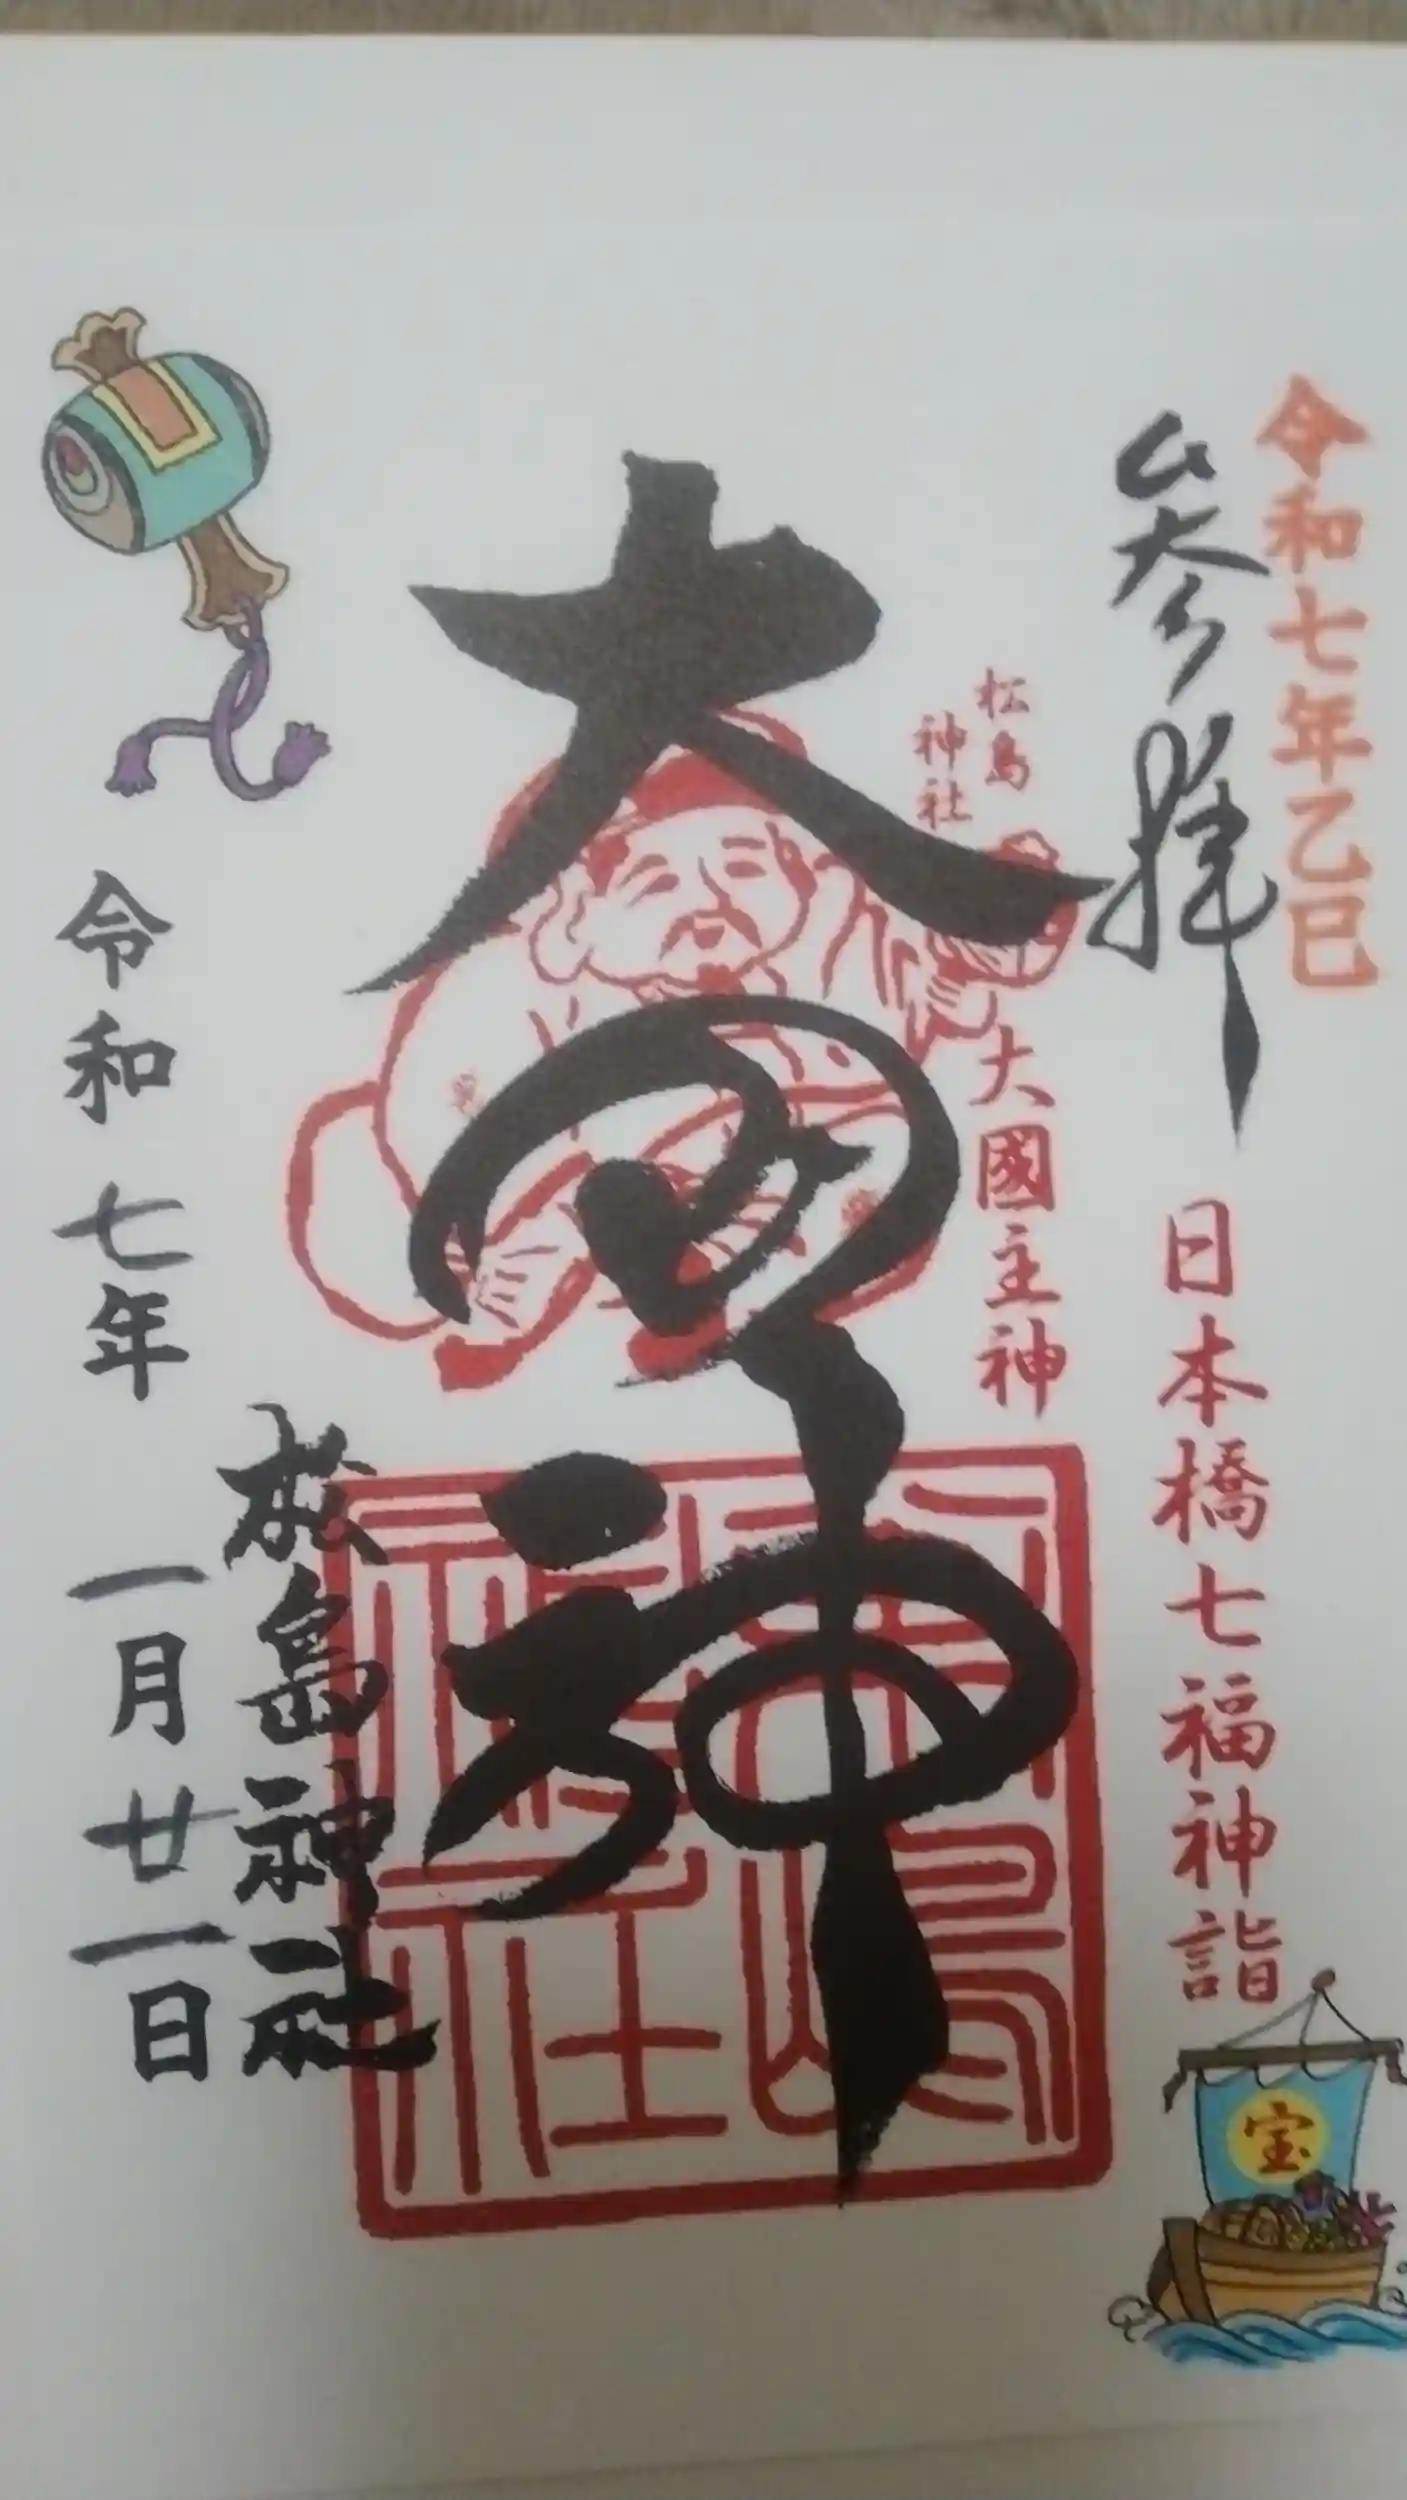 令和七年乙巳
参拝
日本橋七福神詣
宝
松島
神社
大國主神
大国神
松島神社
松島神社
令和七年 一月廿一日